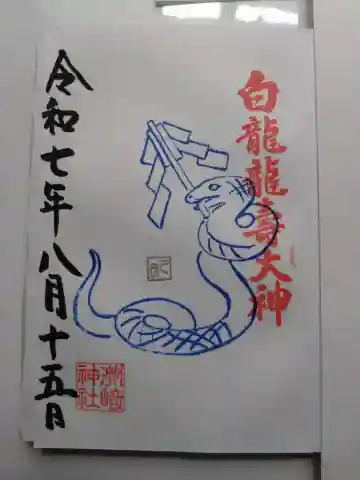 白龍龍壽大神
令和七年八月十五日
洲﨑
神社